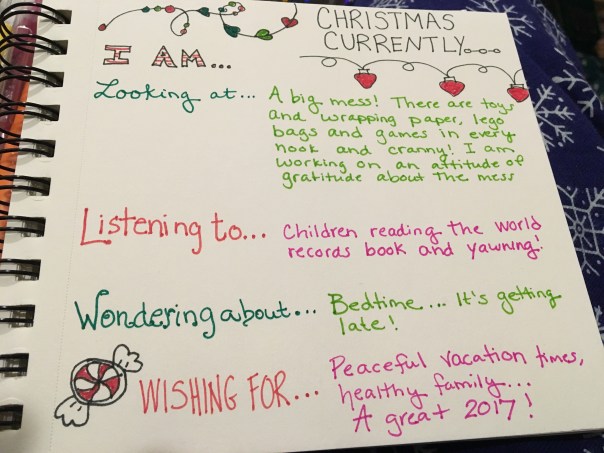 CHRISTMAS
CURRENTLY....
I AM...
Looking at...
A big mess! There are toys
and wrapping paper, lego
bags and games in every
nook and cranny! I am
working on an attitude of
gratitude about the mess
Listening to...
Children reading the world
records book and yawning!
Wondering about...
Bedtime... It's getting
late!
WISHING FOR...
Peaceful vacation times,
healthy family...
A great 2017!